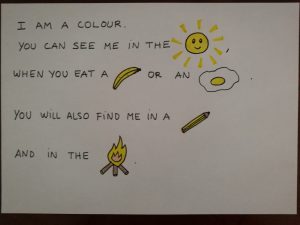 I AM A COLOUR.
YOU CAN SEE ME IN THE ,
WHEN YOU EAT A OR AN .
YOU WILL ALSO FIND ME IN A
AND IN THE .